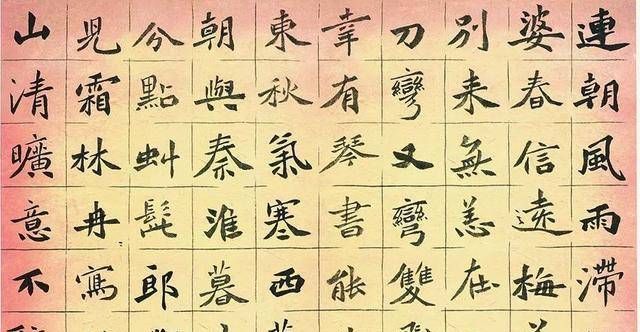 連朝風雨滯
婆春信遠梅
別来無恙在
刀彎又彎雙
幸有琴書能
東秋氣寒西
朝與秦淮暮
分點虯髭郎
児霜林冉寫
山清曠意不